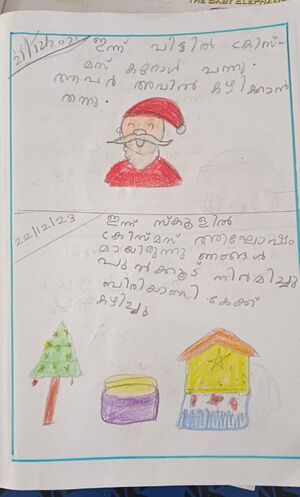 THE BABY ELEPHAN
ഇന്ന് വീട്ടിൽ ക്രിസ്-
മസ് കരോൾ വന്നു.
അവർ അവിൽ കഴിക്കാൻ
തന്നു.
22/12/23
ഇന്ന് സ്കൂളിൽ
ക്രിസ്മസ് ആഘോഷം
മായിരുന്നു ഞങ്ങൾ
പുൽക്കൂട് നിർമിച്ചു
ബിരിയാണി കേക്ക്
കഴിച്ചു